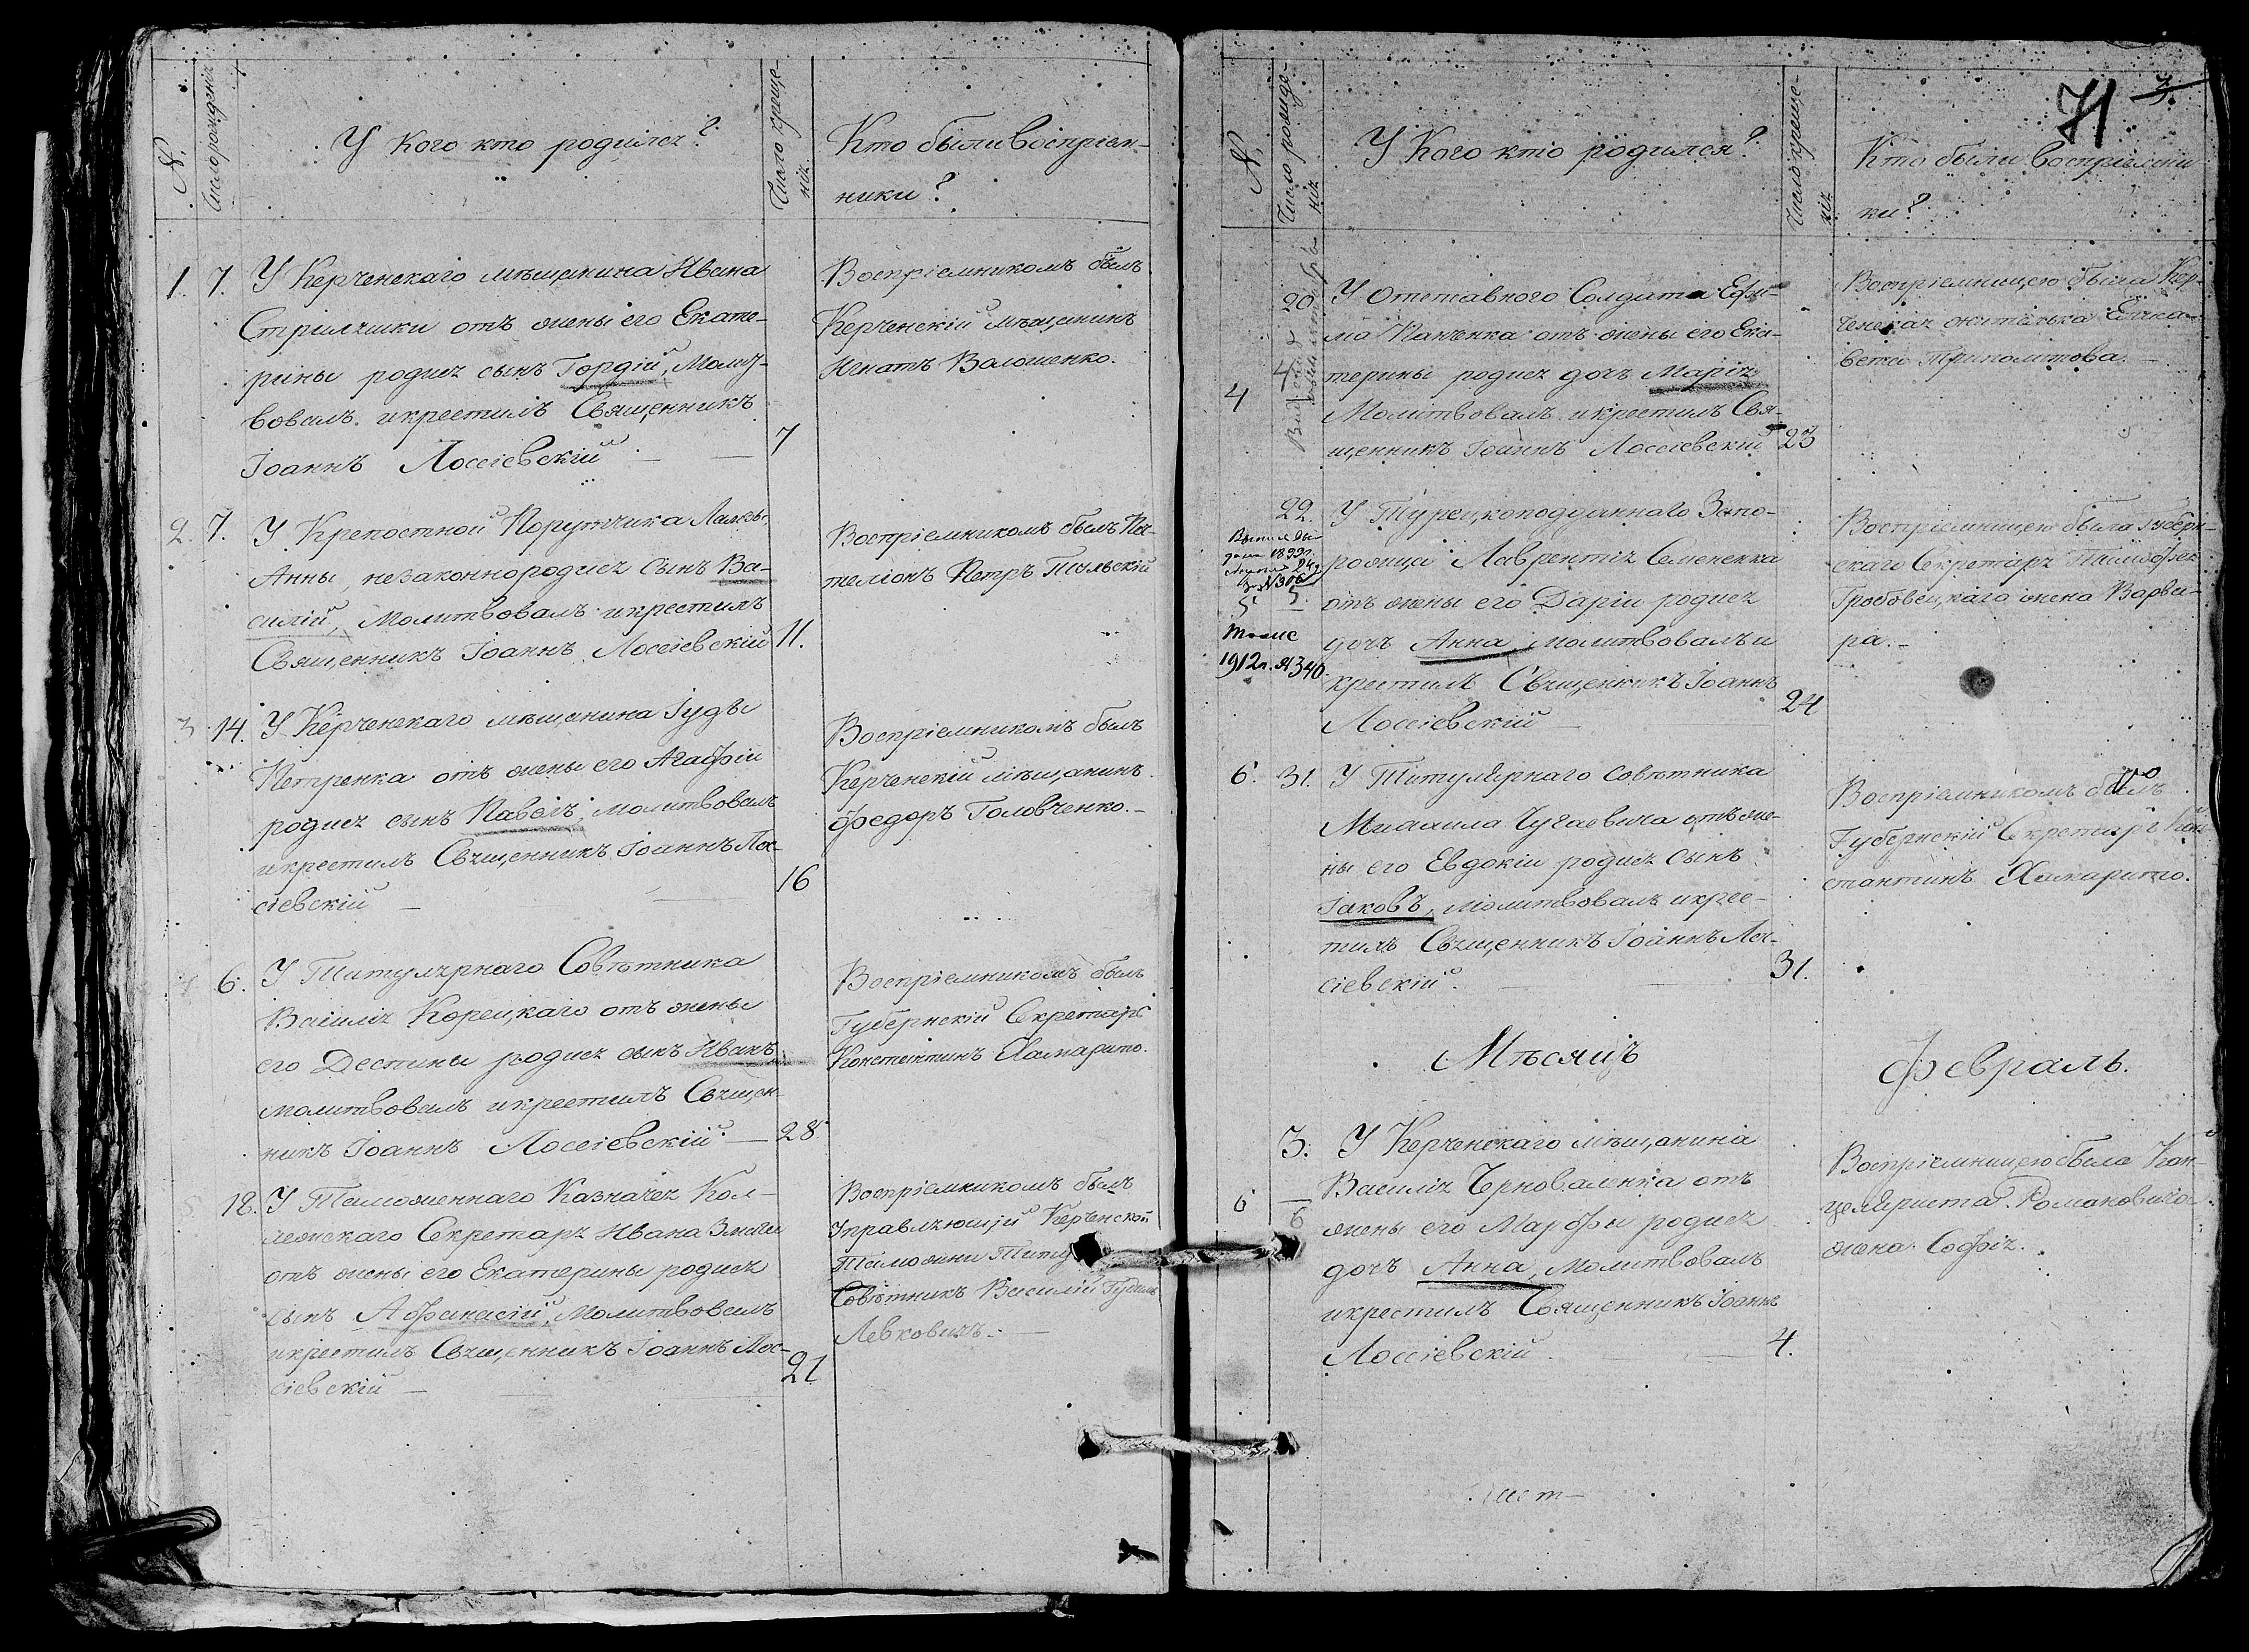 №
Число рожденія
У кого кто родился?
Число креще-
нія
Кто были воспріем-
ники?
1. 7. У Керченскаго мѣщанина Ивана
Стрилчики отъ жены его Екате-
рины родися сынъ Гордій, Молит-
вовалъ и крестилъ Священникъ
Іоаннъ Лоссіевскій — 7
Воспріемникомъ былъ
Керченскій мѣщанинъ
Игнатъ Волошенко.
2. 7. У Крепостной Порутчика
Анны, незаконнородися сынъ Ва-
силій, Молитвовалъ и крестилъ
Священникъ Іоаннъ Лоссіевскій 11.
Воспріемникомъ былъ
Петръ
3 14. У Керченскаго мѣщанина Іуды
Петренка отъ жены его Агафіи
родися сынъ Павелъ, молитвовалъ
и крестилъ Священникъ Іоаннъ Лос-
сіевскій — 16
Воспріемникомъ былъ
Керченскій мѣщанинъ
Федоръ Головченко.—
6. У Титулярнаго Совѣтника
Василія Корецкаго отъ жены
его Деспины родися сынъ Иванъ
молитвовалъ и крестилъ Священ-
никъ Іоаннъ Лоссіевскій — 28
Воспріемникомъ былъ
Губернскій Секретарь
Константинъ Хамарито.
18. У Таможеннаго Казначея Кол-
лежскаго Секретаря Ивана
отъ жены его Екатерины родися
сынъ Афанасій, Молитвовалъ
и крестилъ Священникъ Іоаннъ Лос-
сіевскій — 21
Воспріемникомъ былъ
Управляющій Керченской
Таможни Титу
Совѣтникъ Василій
Левковичъ.—
71 3.
№
Число рожде-
нія
У Кого кто родился?
Число креще-
нія
Кто были воспріемни
ки?
4 20. У отставного Солдата Ефи-
ма Панченка отъ жены его Ека-
терины родися дочь Марія
Молитвовалъ и крестилъ Свя-
щенникъ Іоаннъ Лоссіевскій 23
Воспріемницею была Кер-
ченская жителька Елиса-
вета
22. У Турецкоподданнаго Запо-
рожца Лаврентія Семененка
отъ жены его Даріи родися
дочь Анна, молитвовалъ и
крестилъ Священникъ Іоаннъ
Лоссіевскій — 24
1899г.
№306
5 5.
тоже
1912г. №340
Воспріемницею была Губерн-
скаго Секретаря
Гробовецкаго жена Варва-
ра.—
6. 31. У Титулярнаго Совѣтника
Михаила Чугаевича отъ же-
ны его Евдокіи родися сынъ
Іаковъ, молитвовалъ и крес-
тилъ Священникъ Іоаннъ Лос-
сіевскій. 31.
Воспріемникомъ былъ
Губернскій Секретарь Кон
стантинъ Хамарито.
Мѣсяцъ Февраль.
6 3. У Керченскаго мѣщанина
6 Василія Черноваленка отъ
жены его Марфы родися
дочь Анна, Молитвовалъ
и крестилъ Священникъ Іоаннъ
Лоссіевскій — 4.
Воспріемницею была Кан-
целяриста Романовича
жена Софія.